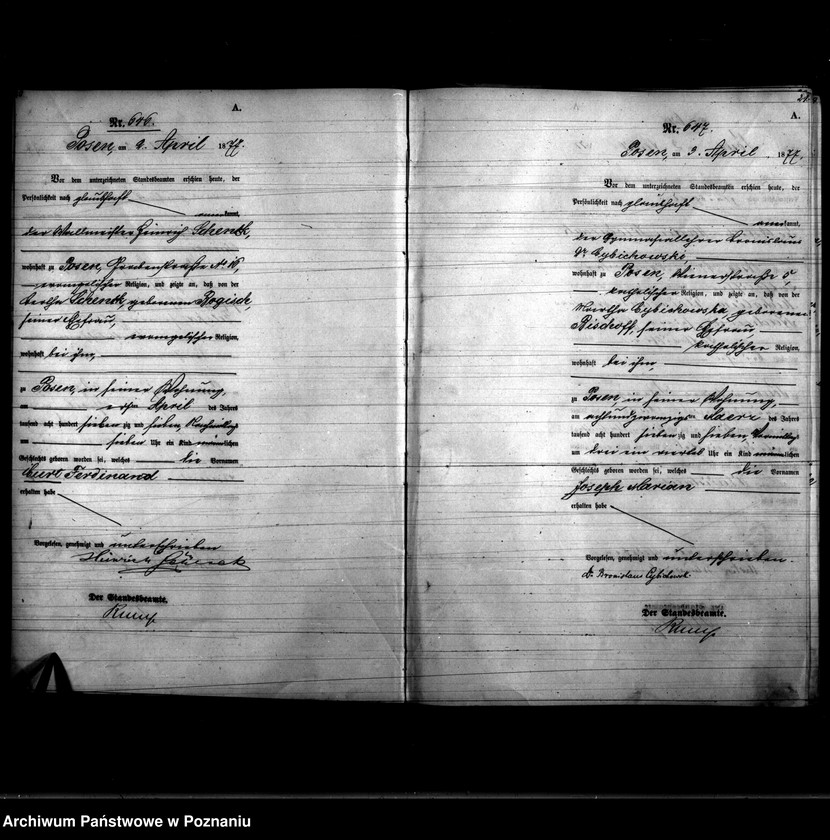 A.
Nr. 646.
Posen, am 9. April 1877.
Vor dem unterzeichneten Standesbeamten erschien heute, der
Persönlichkeit nach glaubhaft
kannt,
der Wallmeister Heinrich Schenck,
wohnhaft zu Posen,
evangelischer Religion, und zeigte an, daß von der
Schenck geborenen Rogisch,
seiner Ehefrau,
evangelischer Religion,
wohnhaft bei ihm,
zu Posen, in seiner Wohnung,
am April des Jahres
tausend acht hundert siebenzig und sieben, Nachmittags
um sieben Uhr ein Kind männlichen
Geschlechts geboren worden sei, welches die Vornamen
Curt Ferdinand
erhalten habe
Vorgelesen, genehmigt und unterschrieben
Heinrich Schenck
Der Standesbeamte.
A.
Nr. 647.
Posen, am 9. April 1877.
Vor dem unterzeichneten Standesbeamten erschien heute, der
Persönlichkeit nach glaubhaft
kannt,
der Gymnasiallehrer Bronislaus
Dr. Cybichowski,
wohnhaft zu Posen, 5,
katholischer Religion, und zeigte an, daß von der
Martha Cybichowska geborenen
Bischoff, seiner Ehefrau,
katholischer Religion,
wohnhaft bei ihm,
zu Posen, in seiner Wohnung,
am achtundzwanzigsten Maerz des Jahres
tausend acht hundert siebenzig und sieben Vormittags
um drei ein viertel Uhr ein Kind männlichen
Geschlechts geboren worden sei, welches die Vornamen
Joseph Marian
erhalten habe
Vorgelesen, genehmigt und unterschrieben.
Dr. Bronislaus Cybichowski.
Der Standesbeamte.
Archiwum Państwowe w Poznaniu